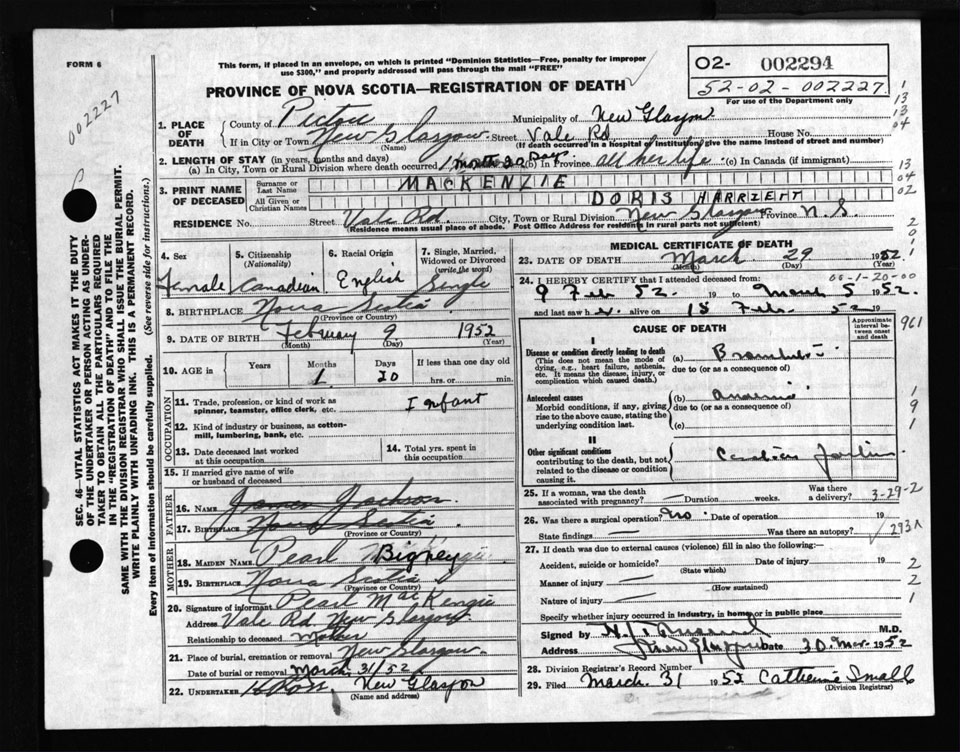 FORM 6
002227
This form, if placed in an envelope, on which is printed "Dominion Statistics—Free, penalty for improper
use $300," and properly addressed will pass through the mail "FREE"
PROVINCE OF NOVA SCOTIA—REGISTRATION OF DEATH
02- 002294
52-02-002227
For use of the Department only
1. PLACE OF DEATH
County of Pictou Municipality of New Glasgow
If in City or Town New Glasgow Street Vale Rd House No.
(Name) (If death occurred in a hospital or institution, give the name instead of street and number)
2. LENGTH OF STAY (in years, months and days)
(a) In City, Town or Rural Division where death occurred 1 month 20 Days (b) in Province all her life (c) In Canada (if immigrant)
3. PRINT NAME OF DECEASED
Surname or Last Name MACKENZIE
All Given or Christian Names DORIS HARRIETT
RESIDENCE No. Street Vale Rd. City, Town or Rural Division New Glasgow Province N.S.
(Residence means usual place of abode. Post Office Address for residents in rural parts not sufficient)
SEC. 46—VITAL STATISTICS ACT MAKES IT THE DUTY
OF THE UNDERTAKER OR PERSON ACTING AS UNDER-
TAKER TO OBTAIN ALL THE PARTICULARS REQUIRED
IN THE "REGISTRATION OF DEATH" AND TO FILE THE
SAME WITH THE DIVISION REGISTRAR WHO SHALL ISSUE THE BURIAL PERMIT.
WRITE PLAINLY WITH UNFADING INK. THIS IS A PERMANENT RECORD.
Every item of information should be carefully supplied. (See reverse side for instructions.)
4. Sex Female
5. Citizenship (Nationality) Canadian
6. Racial Origin English
7. Single, Married, Widowed or Divorced (write the word) Single
8. BIRTHPLACE Nova Scotia
(Province or Country)
9. DATE OF BIRTH February 9 1952
(Month) (Day) (Year)
10. AGE in Years Months 1 Days 20 If less than one day old hrs. or min.
OCCUPATION
11. Trade, profession, or kind of work as
spinner, teamster, office clerk, etc. Infant
12. Kind of industry or business, as cotton-
mill, lumbering, bank, etc.
13. Date deceased last worked at this occupation
14. Total yrs. spent in this occupation
15. If married give name of wife
or husband of deceased
FATHER
16. Name James Jackson
17. Birthplace Nova Scotia
(Province or Country)
MOTHER
18. MAIDEN NAME Pearl Bigney
19. BIRTHPLACE Nova Scotia
(Province or Country)
20. Signature of informant Pearl MacKenzie
Address Vale Rd New Glasgow
Relationship to deceased Mother
21. Place of burial, cremation or removal New Glasgow
Date of burial or removal March 31/52
22. UNDERTAKER H Ross New Glasgow
(Name and address)
MEDICAL CERTIFICATE OF DEATH
23. DATE OF DEATH March 29 1952
(Month) (Day) (Year)
24. I HEREBY CERTIFY that I attended deceased from: 00-1-20-00
9 Feb 52 19 to March 5 1952
and last saw her alive on 18 Feb. 52 19
CAUSE OF DEATH
Approximate interval between onset and death
I
Disease or condition directly leading to death (a)
(This does not mean the mode of dying, e.g., heart failure, asthenia, etc. It means the disease, injury, or complication which caused death.)
due to (or as a consequence of)
Antecedent causes (b)
Morbid conditions, if any, giving rise to the above cause, stating the underlying condition last.
due to (or as a consequence of)
(c)
II
Other significant conditions
contributing to the death, but not related to the disease or condition causing it. Cardiac failure
25. If a woman, was the death associated with pregnancy? — Duration weeks. Was there a delivery?
26. Was there a surgical operation? no. Date of operation 19
State findings — Was there an autopsy?
27. If death was due to external causes (violence) fill in also the following:—
Accident, suicide or homicide? Date of injury 19
(State which)
Manner of injury —
(How sustained)
Nature of injury —
Specify whether injury occurred in industry, in home or in public place
Signed by M.D.
Address Date 30 Mar 1952
28. Division Registrar's Record Number
29. Filed March 31 1952 Catherine Small
(Division Registrar)
1
13
13
04
13
04
02
2
0
1
1
961
1
9
1
3-29-2
293A
2
2
1